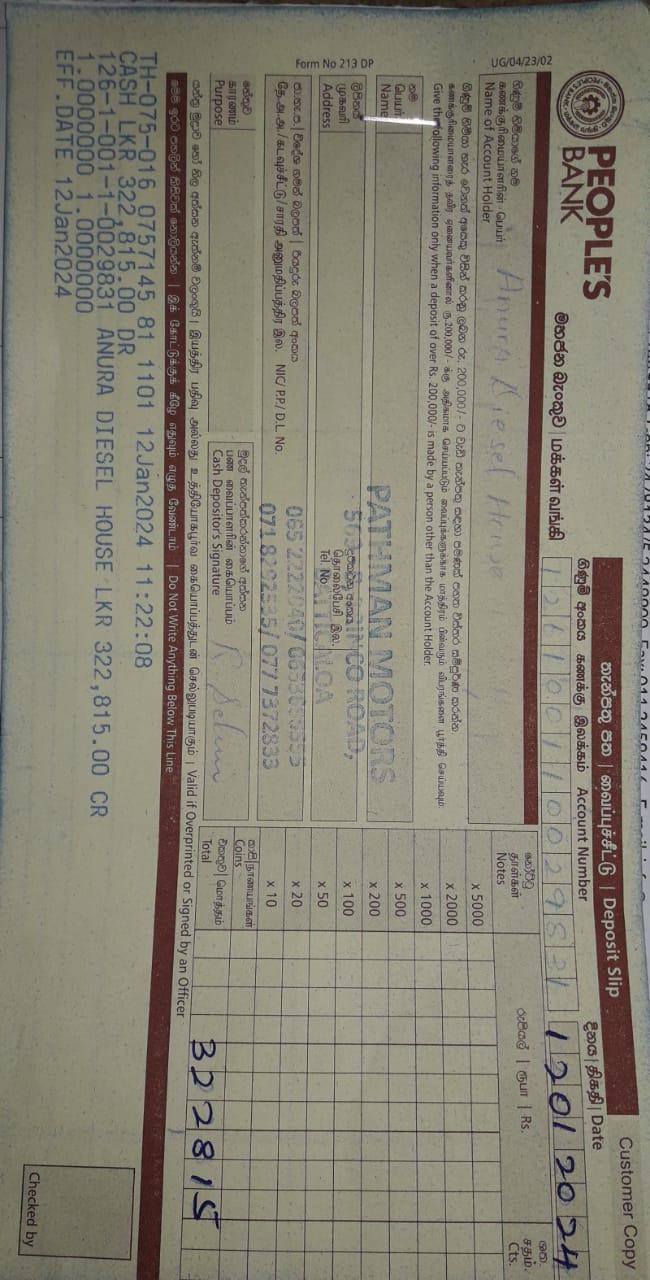 Customer Copy
තැන්පතු පත | வைப்புச்சீட்டு | Deposit Slip
PEOPLE'S
BANK
මහජන බැංකුව | மக்கள் வங்கி
ගිණුම් අංකය கணக்கு இலக்கம் Account Number
126100110029831
දිනය | திகதி | Date
12012024
UG/04/23/02
ගිණුම් හිමියාගේ නම
கணக்குரிமையாளரின் பெயர்
Name of Account Holder
Anura Diesel House
නෝට්ටු
தாள்கள்
Notes
රුපියල් | ரூபா | Rs.
ශත.
சதம்.
Cts.
Give the following information only when a deposit of over Rs. 200,000/- is made by a person other than the Account Holder.
නම
பெயர்
Name
PATHMAN MOTORS
ලිපිනය
முகவரி
Address
INCO ROAD,
දුරකථන අංකය
தொலைபேசி இல.
Tel. No
Form No 213 DP
NIC/ P.P./ D.L. No.
065 2222
071 8292535/ 077 7372833
හේතුව
காரணம்
Purpose
මුදල් තැන්පත්කරන්නාගේ අත්සන
பண வைப்பாளரின் கையொப்பம்
Cash Depositor's Signature
x 5000
x 2000
x 1000
x 500
x 200
x 100
x 50
x 20
x 10
කාසි | நாணயங்கள்
Coins
එකතුව | மொத்தம்
Total
322815
Valid if Overprinted or Signed by an Officer
මෙම ඉරට පහළින් කිසිවක් නොලියන්න | இக் கோட்டுக்குக் கீழே எதுவும் எழுத வேண்டாம் | Do Not Write Anything Below This Line
TH-075-016 0757145 81 1101 12Jan2024 11:22:08
CASH LKR 322,815.00 DR
126-1-001-1-0029831 ANURA DIESEL HOUSE LKR 322,815.00 CR
1.0000000 1.0000000
EFF.DATE 12Jan2024
Checked by